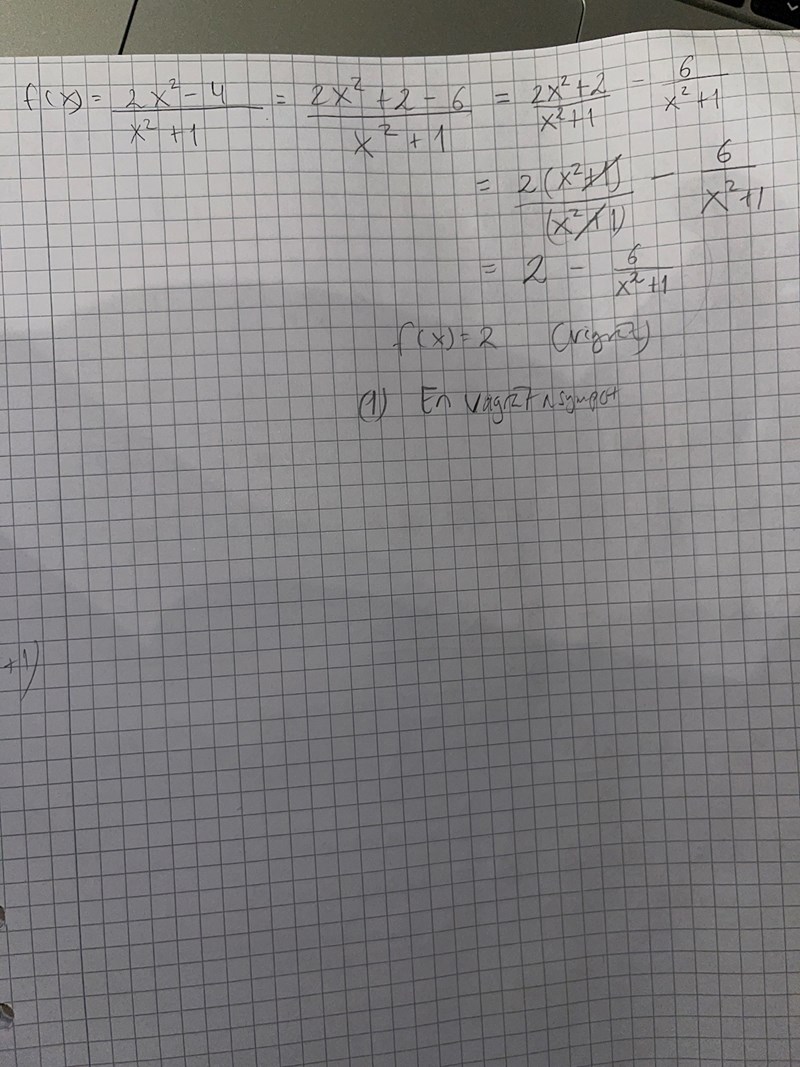 f(x) = (2x² - 4)/(x² + 1) = (2x² + 2 - 6)/(x² + 1) = (2x² + 2)/(x² + 1) - 6/(x² + 1)
= 2(x² + 1)/(x² + 1) - 6/(x² + 1)
= 2 - 6/(x² + 1)
f(x) = 2 (vågrät)
(1) En vågrät Asymptot
+1)